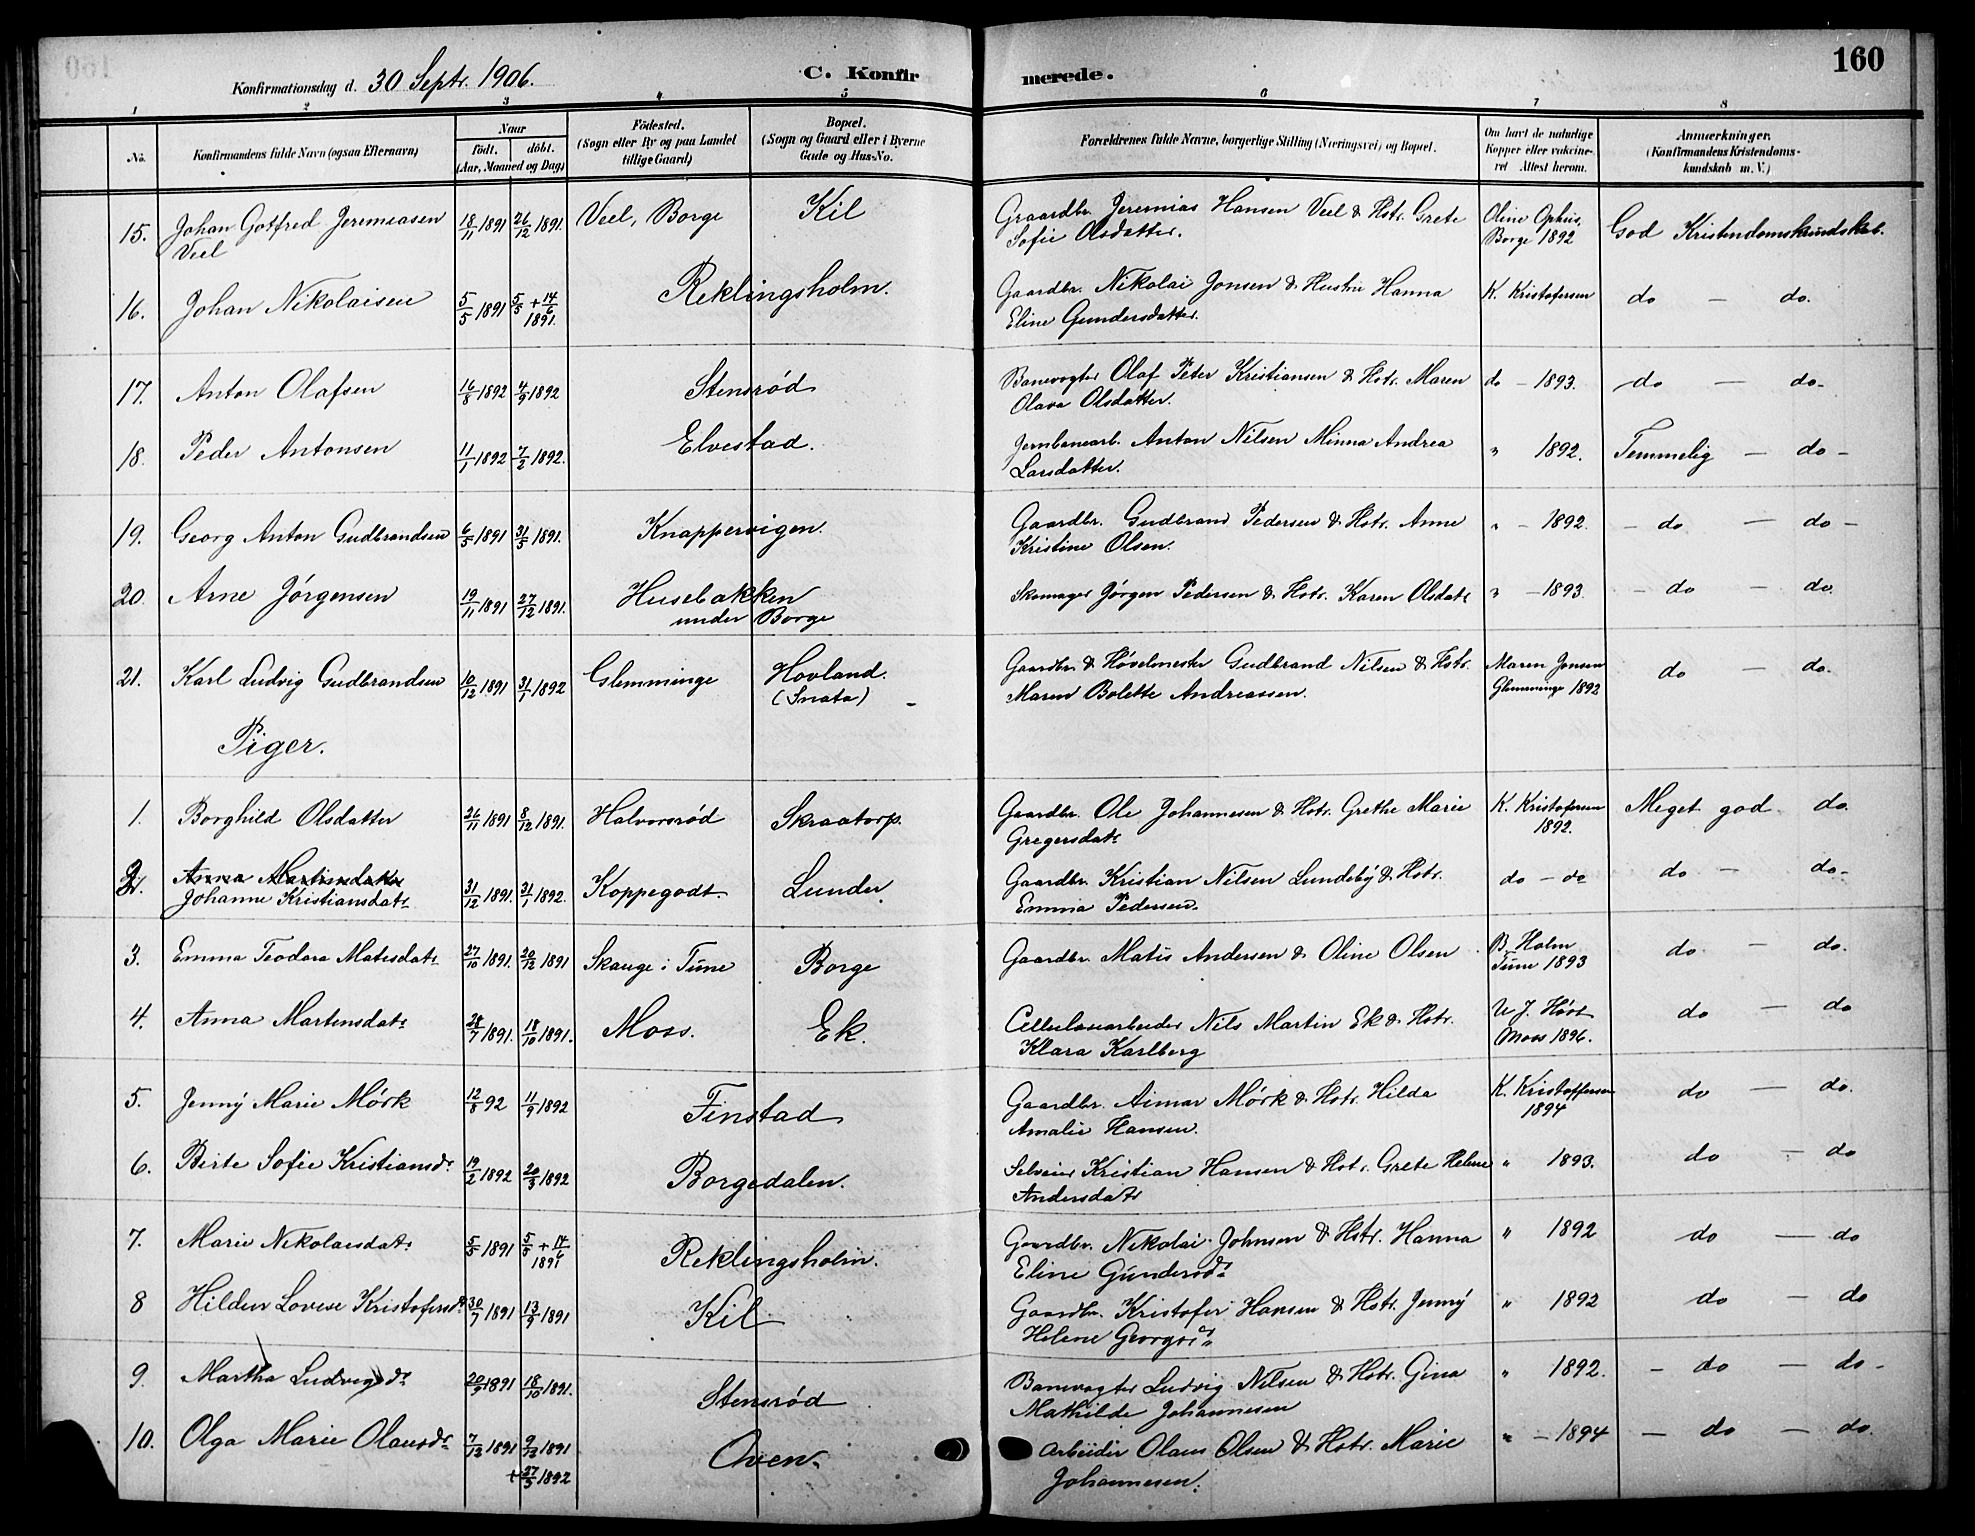 160
Konfirmationsdag d. 30 Septr. 1906.
C. Konfirmerede.
1 2 3 4 5 6 7 8
No.
Konfirmandens fulde Navn (ogsaa Efternavn)
Naar
födt. döbt.
(Aar, Maaned og Dag)
Födested.
(Sogn eller By og paa Landet
tillige Gaard)
Bopæl.
(Sogn og Gaard eller i Byerne
Gade og Hus-No.
Forældrenes fulde Navne, borgerlige Stilling (Næringsvei) og Bopæl.
Om havt de naturlige
Kopper eller vaksine-
ret Attest herom.
Anmærkninger.
(Konfirmandens Kristendoms-
kundskab m. V.)
15. Johan Gotfred Jeremiasen 18/11 1891 26/12 1891. Veel, Borge Kil Graardbr. Jeremias Hansen Veel & Hstr. Grete Oline Ophus, God Kristendomskundskab.
Veel Sofie Olsdatter. Borge 1892
16. Johan Nikolaisen 5/5 1891 5/5 + 14/6 1891. Reklingsholm. Gaardbr. Nikolai Jonsen & Hustru Hanna K. Kristofersen do — do.
Eline Gundersdatter.
17. Anton Olafsen 16/8 1892 4/9 1892 Stensrød Banevogter Olaf Peter Kristiansen & Hstr. Maren do — 1893. do — do-
Olava Olsdatter.
18. Peder Antonsen 11/1 1892 7/2 1892. Elvestad. Jernbanearb. Anton Nilsen Minna Andrea " 1892. Temmelig — do —
Larsdatter.
19. Georg Anton Gudbrandsen 6/5 1891 31/5 1891. Knappervigen. Gaardbr. Gudbrand Pedersen & Hstr. Anne " — 1892. — do — do —
Kristine Olsen.
20. Arne Jörgensen 19/11 1891 27/12 1891. Husebakken Skomager Jörgen Pedersen & Hstr. Karen Olsdatr " — 1893. — do — do.
under Borge
21. Karl Ludvig Gudbrandsen 10/12 1891 31/1 1892 Glemminge Hovland. Gaardbr. & Høvelmester Gudbrand Nilsen & Hstr. Maren Jensen do — do.
(Snata) Maren Bolette Andreassen. Glemminge 1892
Piger.
1. Borghild Olsdatter 26/11 1891 8/12 1891. Halvorsrød Skraatorp. Gaardbr. Ole Johannesen & Hstr. Grethe Marie K. Kristofersen Meget god do.
Gregersdatr 1892.
2. Anna Martinsdatter
Johanne Kristiansdatr 31/12 1891. 31/1 1892. Koppegodt. Lunder. Gaardbr. Kristian Nilsen Lundeby & Hstr. do — do do — do-
Emma Pedersen.
3. Emma Teodora Matisdatr 27/10 1891. 20/12 1891 Skauge i Tune Borge Gaardbr. Matis Andersen & Oline Olsen B. Holm do — do.
Tune 1893
4. Anna Martensdatr 28/7 1891. 18/10 1891. Moss. Ek. Cellulosearbeider Nils Martin Ek & Hstr. do — do
Klara Karlberg Moss 1896.
5. Jenny Marie Mörk 12/8 92 11/9 1892 Finstad Gaardbr. Aimar Mörk & Hstr. Hilda K. Kristoffersen do — do.
Amalie Hansen. 1894
6. Birte Sofie Kristiansdr 19/2 1892 20/3 1892 Borgedalen. Selveier Kristian Hansen & Hstr. Grete Helene " 1893. do — do
Andersdatr
7. Marie Nikolaisdatr 5/5 1891 5/5 + 14/6 1891 Reklingsholm. Gaardbr. Nikolai Johnsen & Hstr. Hanna " 1892 do — do
Eline Gundersdr
8 Hildur Lovise Kristofersdr 30/7 1891 13/9 1891 Kil Gaardbr. Kristofer Hansen & Hstr. Jenny " 1892 do — do
Helene Georgsdr
9. Martha Ludvigsdr 20/9 1891 18/10 1891. Stensrød Banevogter Ludvig Nilsen & Hstr. Gina " 1892. — do — do-
Mathilde Johannesen
10. Olga Marie Olausdr 7/12 1891 9/12 1891 Oven. Arbeider Olaus Olsen & Hstr. Marie " — 1894 — do — do.
+ 27/3 1892 Johannesen.